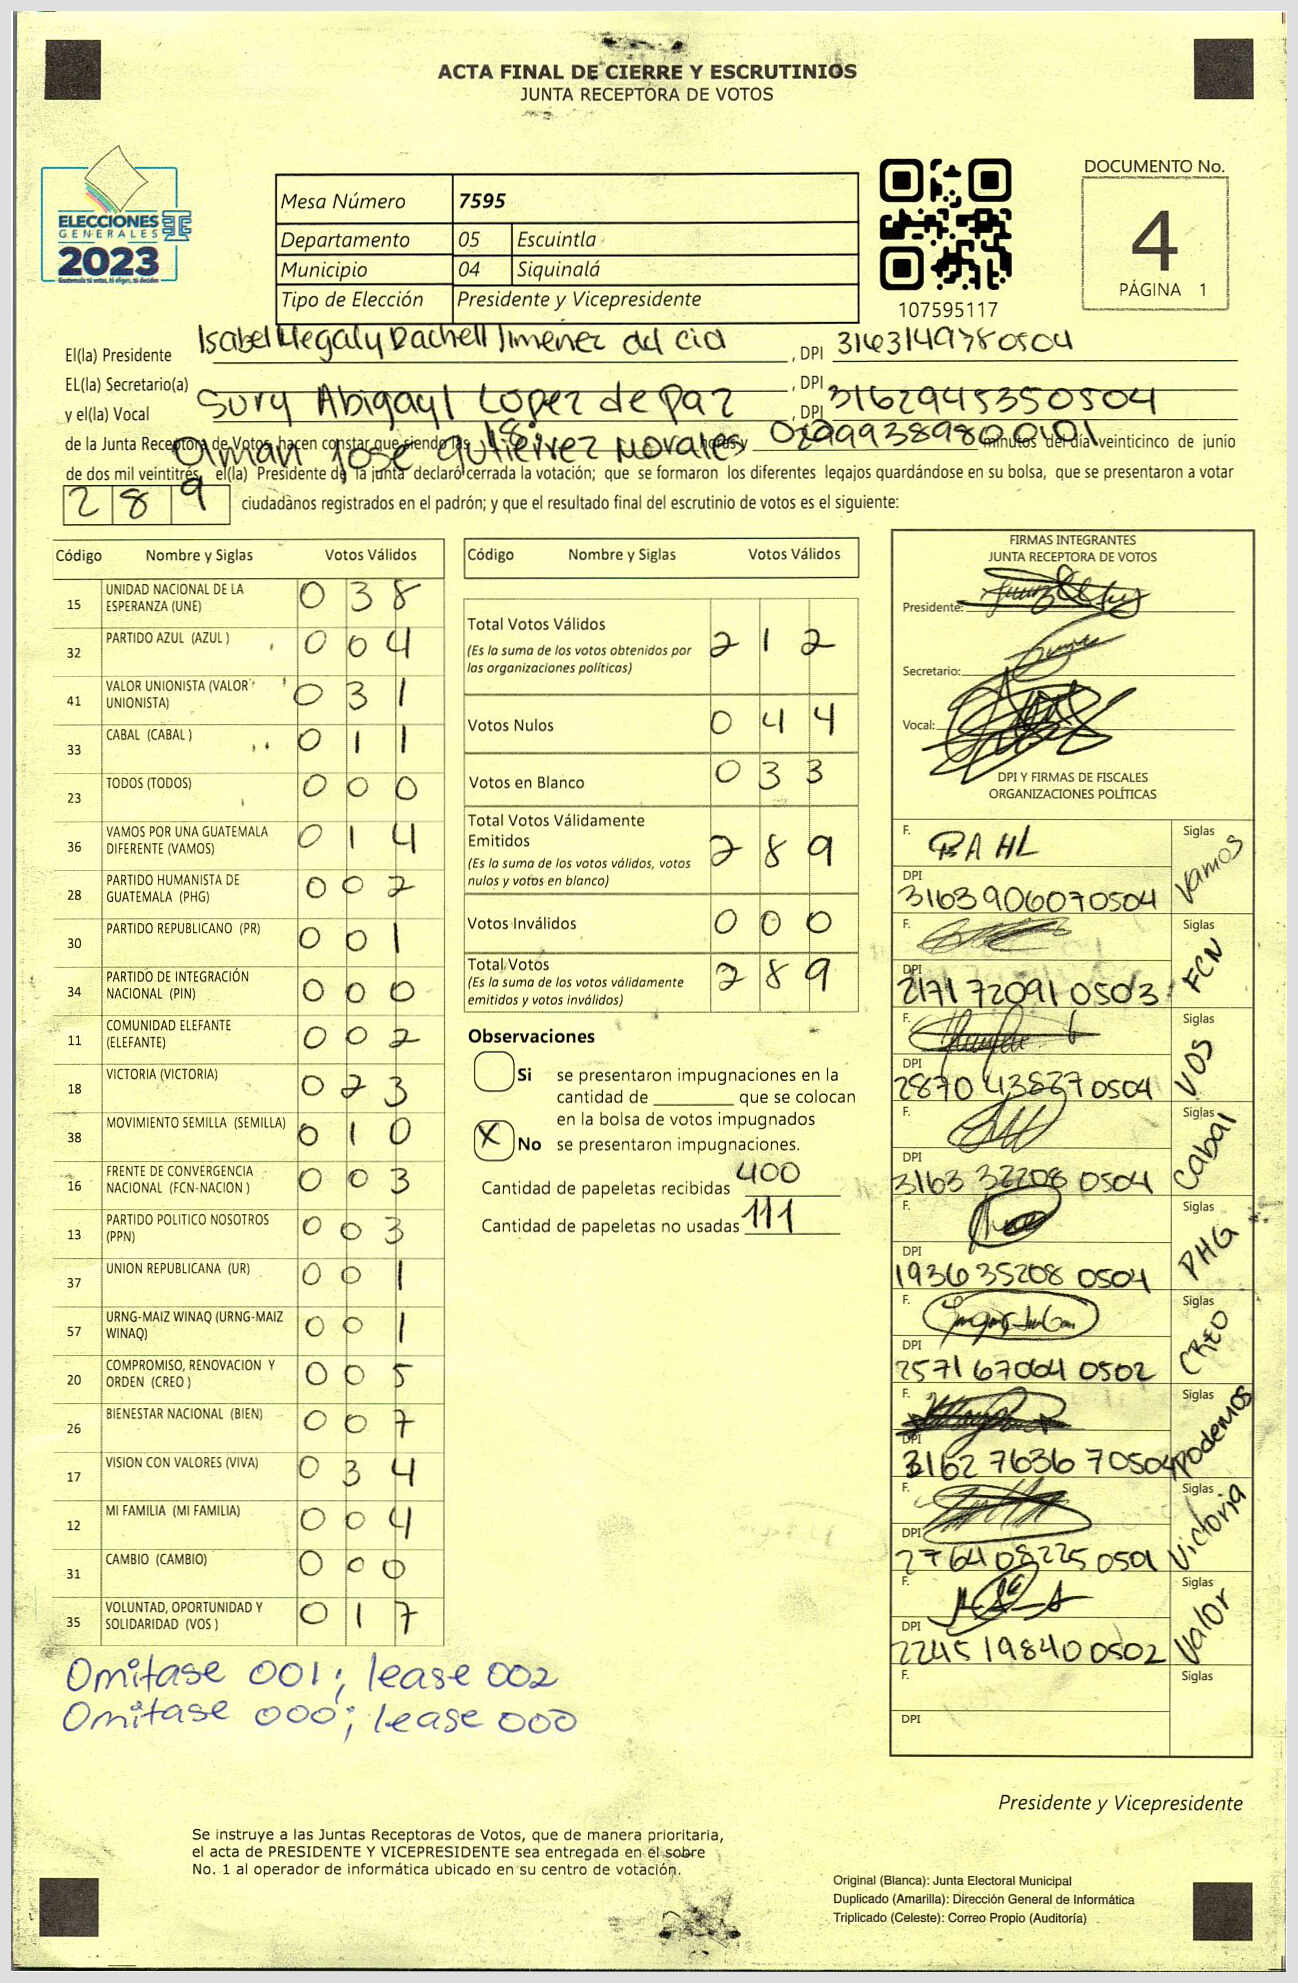 ACTA FINAL DE CIERRE Y ESCRUTINIOS
JUNTA RECEPTORA DE VOTOS
ELECCIONES
GENERALES
2023
Mesa Número 7595
Departamento 05 Escuintla
Municipio 04 Siquinalá
Tipo de Elección Presidente y Vicepresidente
107595117
DOCUMENTO No.
4
PÁGINA 1
El(la) Presidente Isabel Megaly Rachell Jimenez del cid , DPI 3163149780504
EL(la) Secretario(a) Sury Abigayl Lopez de Paz , DPI 3162945350504
y el(la) Vocal Oman Jose Gutierrez Morales , DPI
de la Junta Receptora de Votos, hacen constar que siendo las 18 horas y minutos del día veinticinco de junio
de dos mil veintitrés, el(la) Presidente de la junta declaró cerrada la votación; que se formaron los diferentes legajos guardándose en su bolsa, que se presentaron a votar
289 ciudadanos registrados en el padrón; y que el resultado final del escrutinio de votos es el siguiente:
Código Nombre y Siglas Votos Válidos
15 UNIDAD NACIONAL DE LA ESPERANZA (UNE) 038
32 PARTIDO AZUL (AZUL ) 004
41 VALOR UNIONISTA (VALOR UNIONISTA) 031
33 CABAL (CABAL ) 011
23 TODOS (TODOS) 000
36 VAMOS POR UNA GUATEMALA DIFERENTE (VAMOS) 014
28 PARTIDO HUMANISTA DE GUATEMALA (PHG) 002
30 PARTIDO REPUBLICANO (PR) 001
34 PARTIDO DE INTEGRACIÓN NACIONAL (PIN) 000
11 COMUNIDAD ELEFANTE (ELEFANTE) 002
18 VICTORIA (VICTORIA) 023
38 MOVIMIENTO SEMILLA (SEMILLA) 010
16 FRENTE DE CONVERGENCIA NACIONAL (FCN-NACION ) 003
13 PARTIDO POLITICO NOSOTROS (PPN) 003
37 UNION REPUBLICANA (UR) 001
57 URNG-MAIZ WINAQ (URNG-MAIZ WINAQ) 001
20 COMPROMISO, RENOVACION Y ORDEN (CREO ) 005
26 BIENESTAR NACIONAL (BIEN) 007
17 VISION CON VALORES (VIVA) 034
12 MI FAMILIA (MI FAMILIA) 004
31 CAMBIO (CAMBIO) 000
35 VOLUNTAD, OPORTUNIDAD Y SOLIDARIDAD (VOS ) 017
Omitase 001; lease 002
Omitase 000; lease 000
Código Nombre y Siglas Votos Válidos
Total Votos Válidos 212
(Es la suma de los votos obtenidos por
las organizaciones políticas)
Votos Nulos 044
Votos en Blanco 033
Total Votos Válidamente
Emitidos 289
(Es la suma de los votos válidos, votos
nulos y votos en blanco)
Votos Inválidos 000
Total Votos 289
(Es la suma de los votos válidamente
emitidos y votos inválidos)
Observaciones
Si se presentaron impugnaciones en la
cantidad de ________ que se colocan
en la bolsa de votos impugnados
X No se presentaron impugnaciones.
Cantidad de papeletas recibidas 400
Cantidad de papeletas no usadas 111
FIRMAS INTEGRANTES
JUNTA RECEPTORA DE VOTOS
Presidente:
Secretario:
Vocal:
DPI Y FIRMAS DE FISCALES
ORGANIZACIONES POLÍTICAS
F. BAHL Siglas Vamos
DPI 3163906070504
F. Siglas FCN
DPI 2171720910503
F. Siglas VOS
DPI 2870438270504
F. Siglas Cabal
DPI 3163322080504
F. Siglas PHG
DPI 1936352080504
F. Siglas CREO
DPI 2571670640502
F. Siglas Podemos
DPI 3162763670504
F. Siglas Victoria
DPI 2764082250501
F. Siglas Valor
DPI 2245198400502
F. Siglas
DPI
Presidente y Vicepresidente
Se instruye a las Juntas Receptoras de Votos, que de manera prioritaria,
el acta de PRESIDENTE Y VICEPRESIDENTE sea entregada en el sobre
No. 1 al operador de informática ubicado en su centro de votación.
Original (Blanca): Junta Electoral Municipal
Duplicado (Amarilla): Dirección General de Informática
Triplicado (Celeste): Correo Propio (Auditoría)